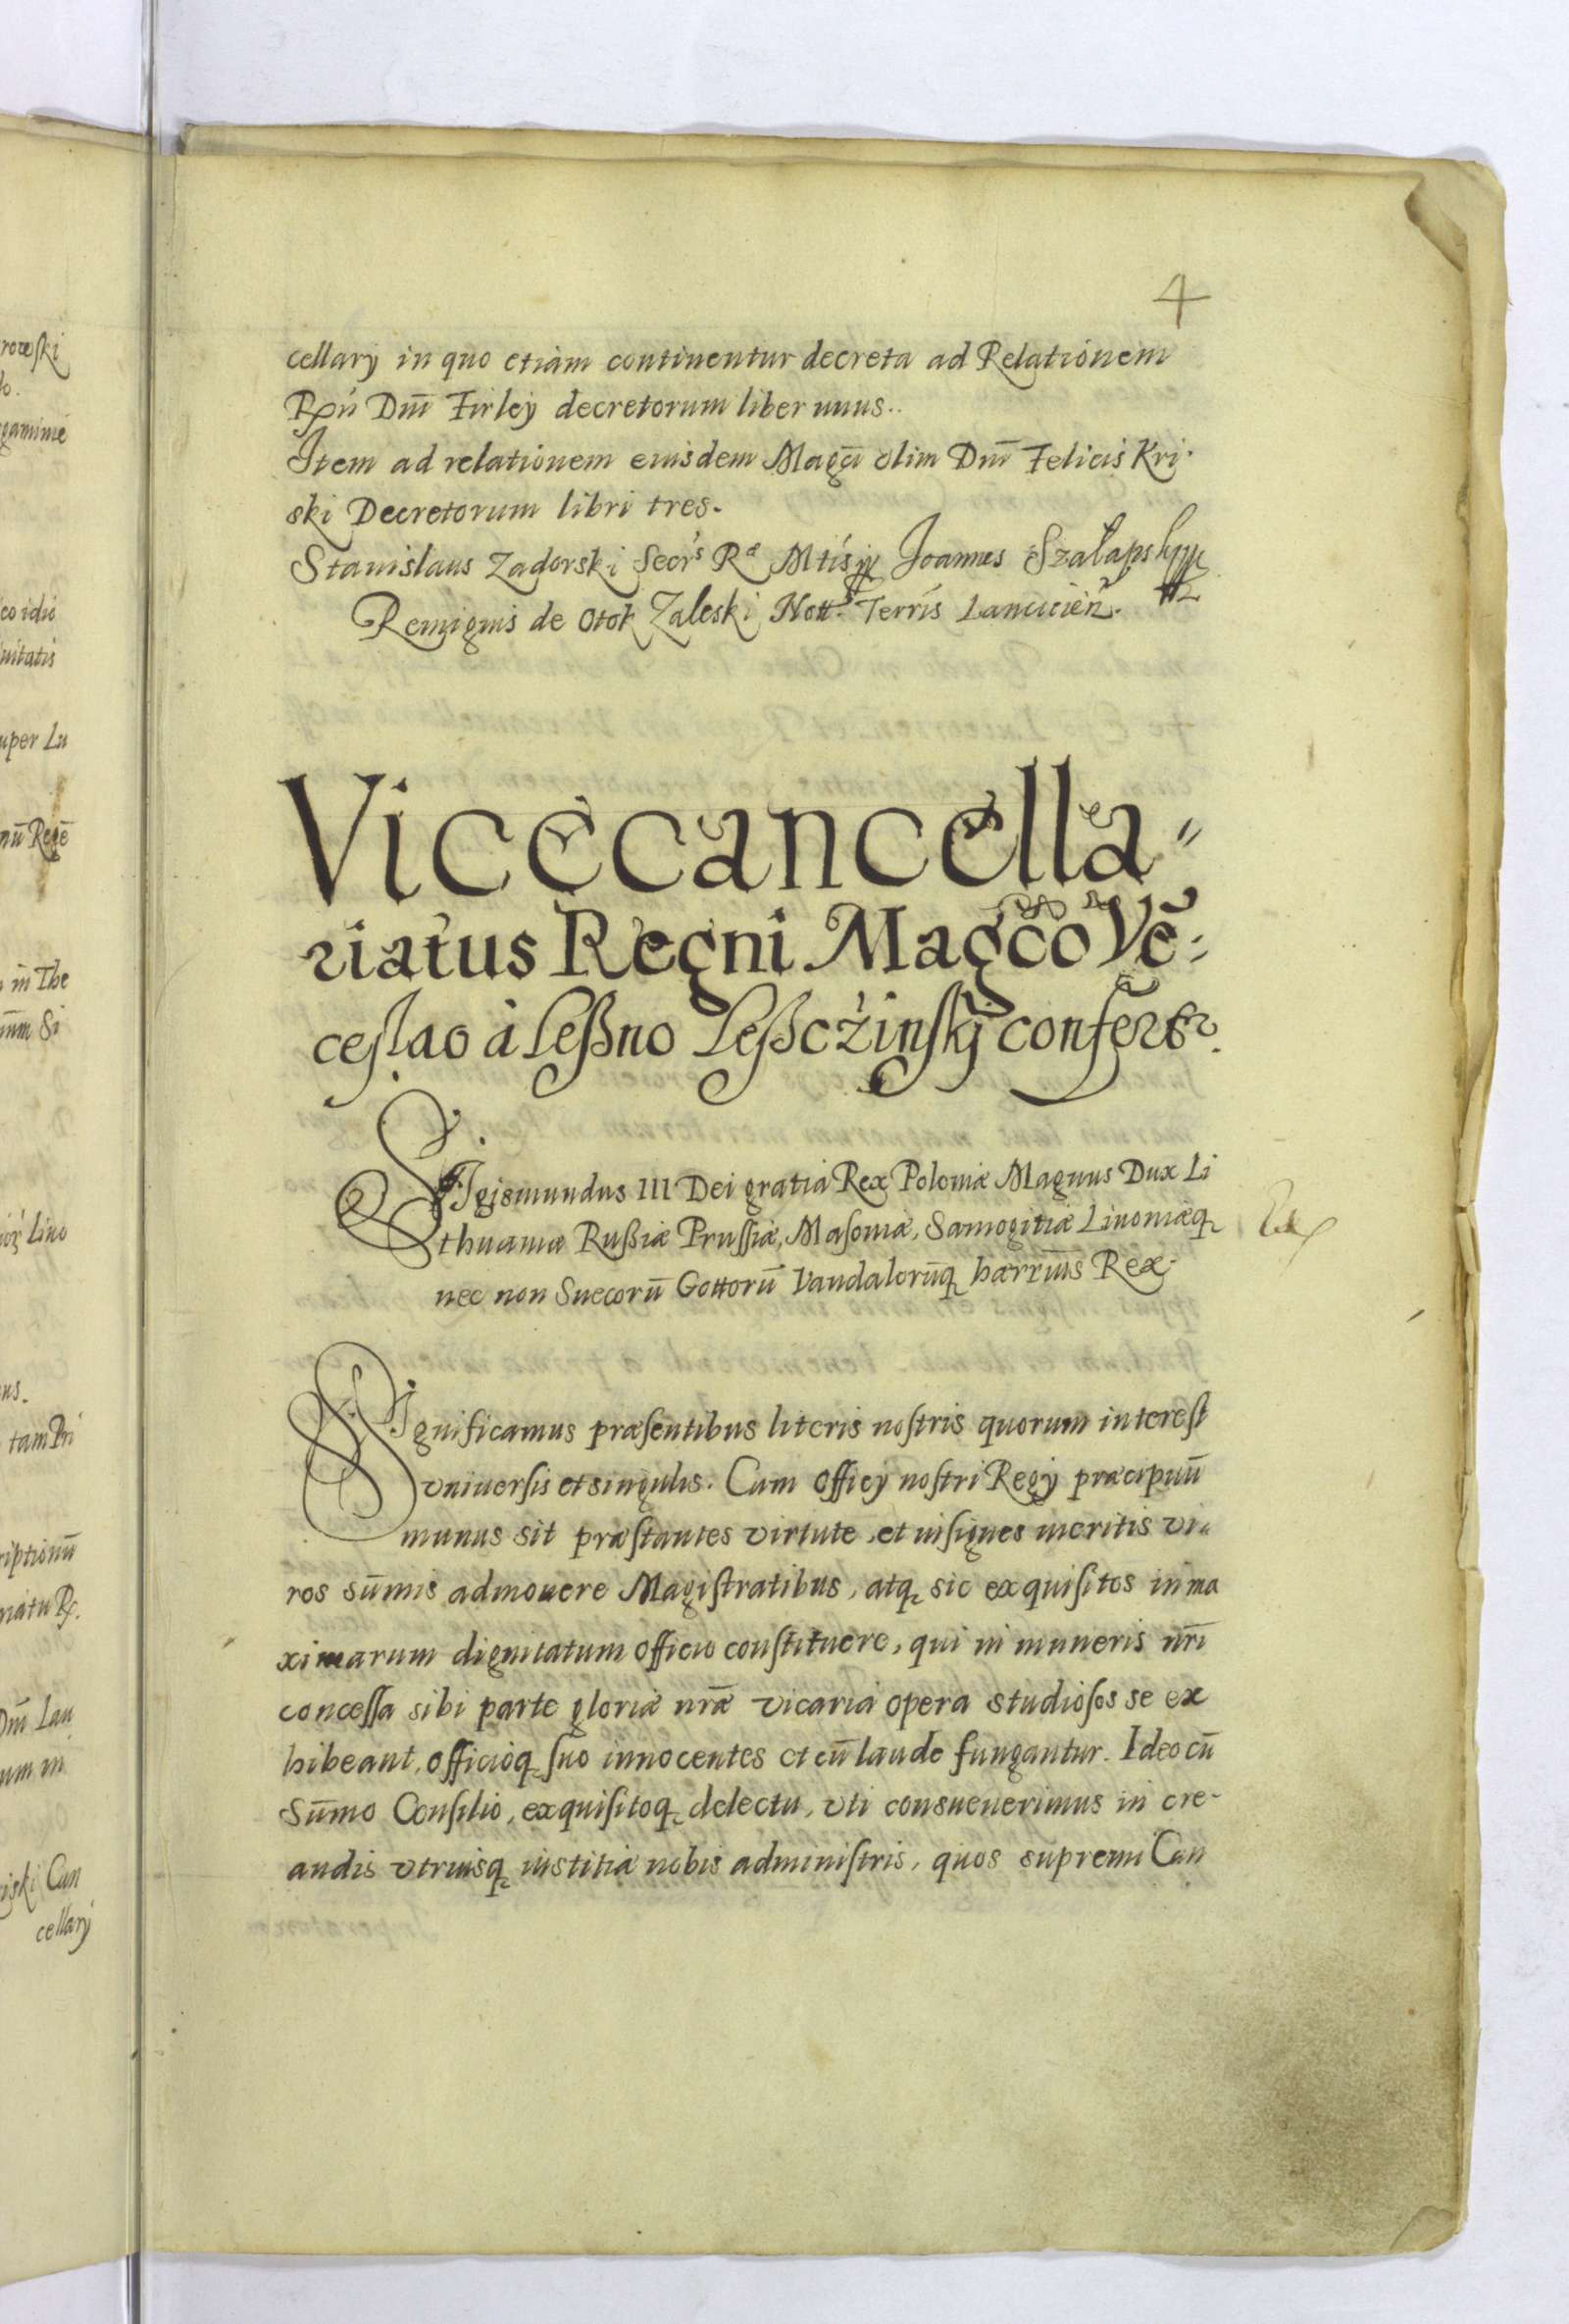 4
cellarij in quo etiam continentur decreta ad Relationem
Rxñ Dnī Firleÿ decretorum liber unus..
Item ad relationem eiusdem Magci olim Dnī Felicis Kri·
ski Decretorum libri tres.
Stanislaus Zadorski Secrs Rę Mtis Joannes Szalapskÿ
Remigius de Otok Zaleski Nott. Terris Lancicień.
Vicecancella=
riatus Regni Magco Vē=
ceſlao à Leßno Leßcżinſkÿ confertr.
SIgismundus III Dei gratia Rex Poloniæ Magnus Dux Li
thuaniæ Rußiæ Pruſſiæ, Maſoviæ, Samogitiæ Livoniæq
nec non Suecorū Gottorū Vandalorūq hærrius Rex.
SIgnificamus præſentibus literis noſtris quorum intereſt
vniuerſis et singulis. Cum officij noſtri Regij præcipuū
munus sit præſtantes virtute, et inſignes meritis vi=
ros sūmis admouere Magiſtratibus, atq sic exquiſitos in ma
ximarum dignitatum officio conſtituere, qui in muneris nrī
conceſſa sibi parte gloriæ nræ vicaria opera studioſos se ex
hibeant, officioq ſuo innocentes et cū laude fungantur. Ideo cū
Sūmo Conſilio, exquiſitoq delectu, vti consueuerimus in cre-
andis vtriusq iustitiæ nobis adminiſtris, quos supremi Can
rowſki
gaminie
co idio
uitatis
uper Lu
nū Regē
in The
Lino
tam Pri
riptionū
Dnī Lan
num in
riski Can
cellarÿ